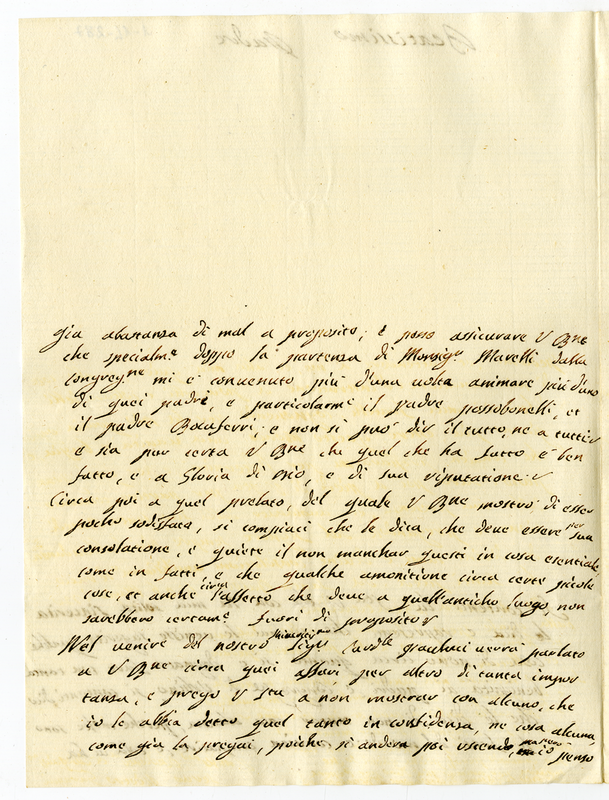 già abastanza di mal a proposito; e posso assicurare V Bne
che specialme doppo la partenza di Monsigr Marelli dalla
congregne mi è convenuto più d'una volta animare più d'uno
di quei padri, e particolarme il padre possobonelli, et
il padre Bocaferri; e non si può dir il tutto, ne a tutti
e sia pur certa V Bne che quel che ha fatto è ben
fatto, e a Gloria di Dio, e di sua riputatione
Circa poi a quel prelato, del quale V Bne mostrò di esser
pocho sodisfata, si compiaci che le dica, che deve essere per sua
consolatione, e quiete il non manchar questi in cosa esentiale
come in fatti, e che qualche amonitione circa certe picole
cose, et anche circa l'affetto che deve a quell'anticho luogo, non
sarebbero certame fuori di proposito
Nel venire del nostro Sigr verrà parlato
a V Bne circa quei affari per altro di tanta impor
tanza, e prego V Sta a non mostrar con alcuno, che
io le abbia detto quel tanto in confidenza, ne cosa alcuna,
come già la pregai, poiche si anderà poi uscendo, io penso